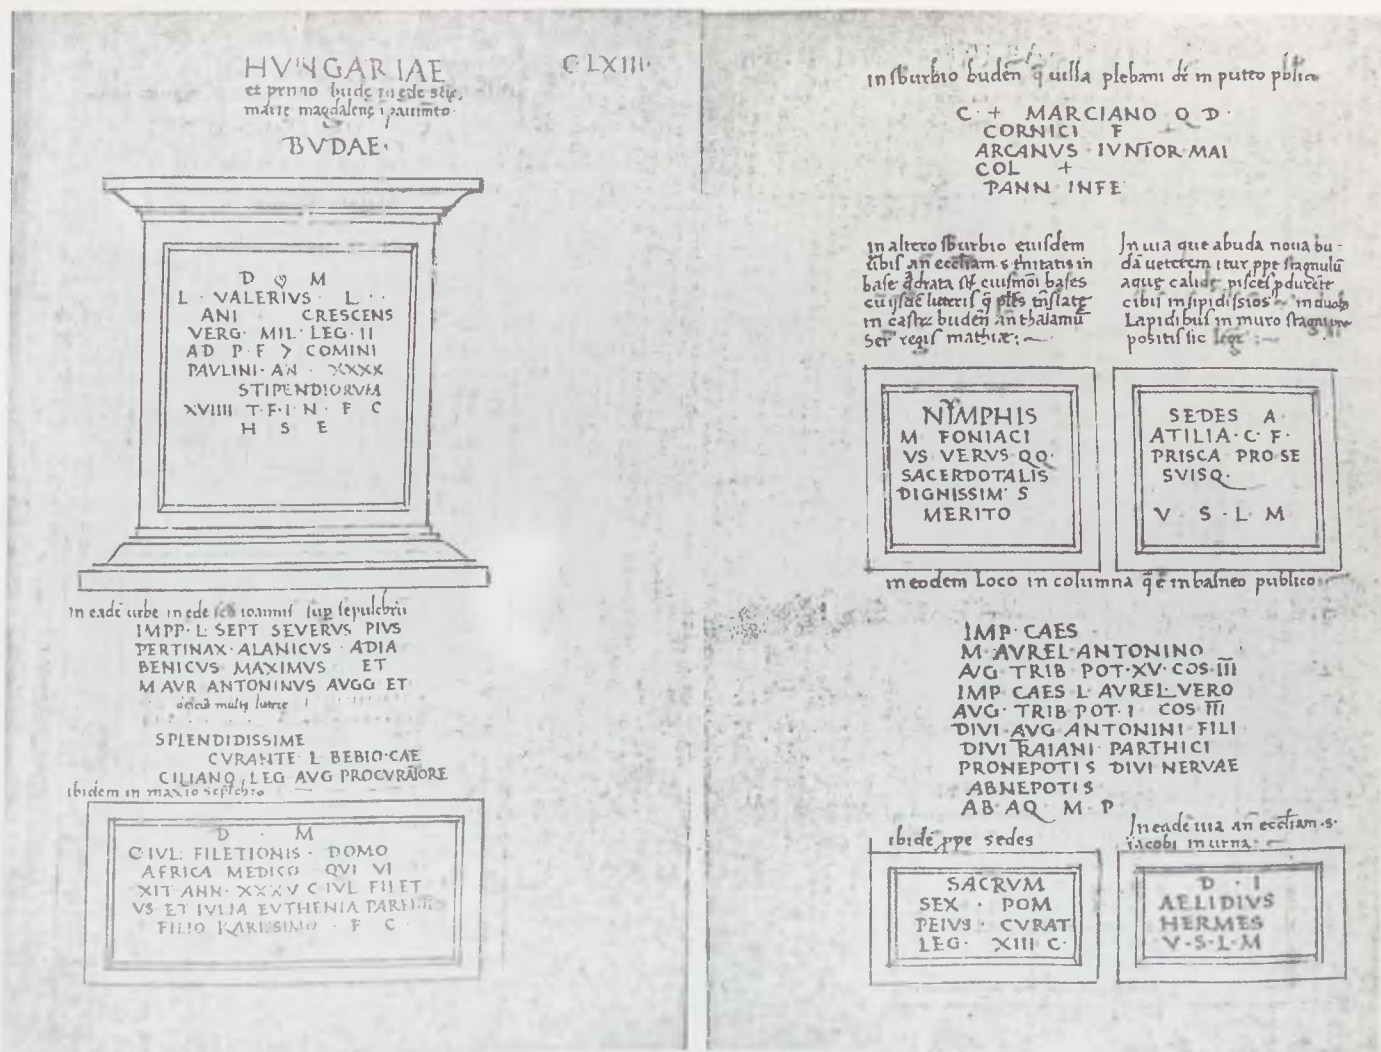 HVNGARIAE
C LXIII·
et primo bude in ede
marie magdalene
BVDAE·
D M
L · VALERIVS · L ··
ANI CRESCENS
VERG· MIL· LEG· II
AD P·F > COMINI
PAVLINI· AN · XXXX
STIPENDIORVM
XVIIII T·F·I·N· F C
H S E
in eadē urbe in ede ioannis sup sepulchrū
IMPP·L· SEPT SEVERVS PIVS
PERTINAX· ALANICVS · ADIA
BENICVS MAXIMVS · ET
M AVR ANTONINVS AVGG ET
multis
SPLENDIDISSIME
CVRANTE L BEBIO·CAE
CILIANO, LEG AVG PROCVRATORE
ibidem in
D · M
C·IVL· FILETIONIS · DOMO
AFRICA MEDICO QVI VI
XIT ANN· XXXV C IVL FILET
VS ET IVLIA EVTHENIA
FILIO KARISSIMO · F C ·
in sburbio budeñ q̄ uilla plebani in puteo
C· + MARCIANO Q D·
CORNICI F
ARCANVS · IVNIOR MAI
COL +
PANN INFE
in altero sburbio eiusdem
urbis añ eccliam s in
base eiusmōi bases
literis
in budeñ añ thalamū
Ser regis mathiæ:~
In uia que abuda noua bu-
dā ueterem itur ppe stagnulū
aque pisces
cibis in
Lapidibus in muro
positis sic
NYMPHIS
M FONIACI
VS VERVS QQ·
SACERDOTALIS
DIGNISSIM' S
MERITO
SEDES A·
ATILIA·C·F·
PRISCA PRO SE
SVISQ·
V · S · L · M
in eodem Loco in columna q̄ ē in balneo publico
IMP· CAES ·
M· AVREL· ANTONINO
AVG TRIB POT·XV·COS·III
IMP CAES L AVREL VERO
AVG· TRIB POT· I COS III
DIVI·AVG ANTONINI FILI
DIVI RAIANI PARTHICI
PRONEPOTIS DIVI NERVAE
ABNEPOTIS
AB·AQ M·P
ibidē ppe sedes
SACRVM
SEX · POM
PEIVS · CVRAT
LEG· XIII C·
In eadē uia añ eccliam·s·
iacobi in urna:
D · I
AELIDIVS
HERMES
V·S·L·M